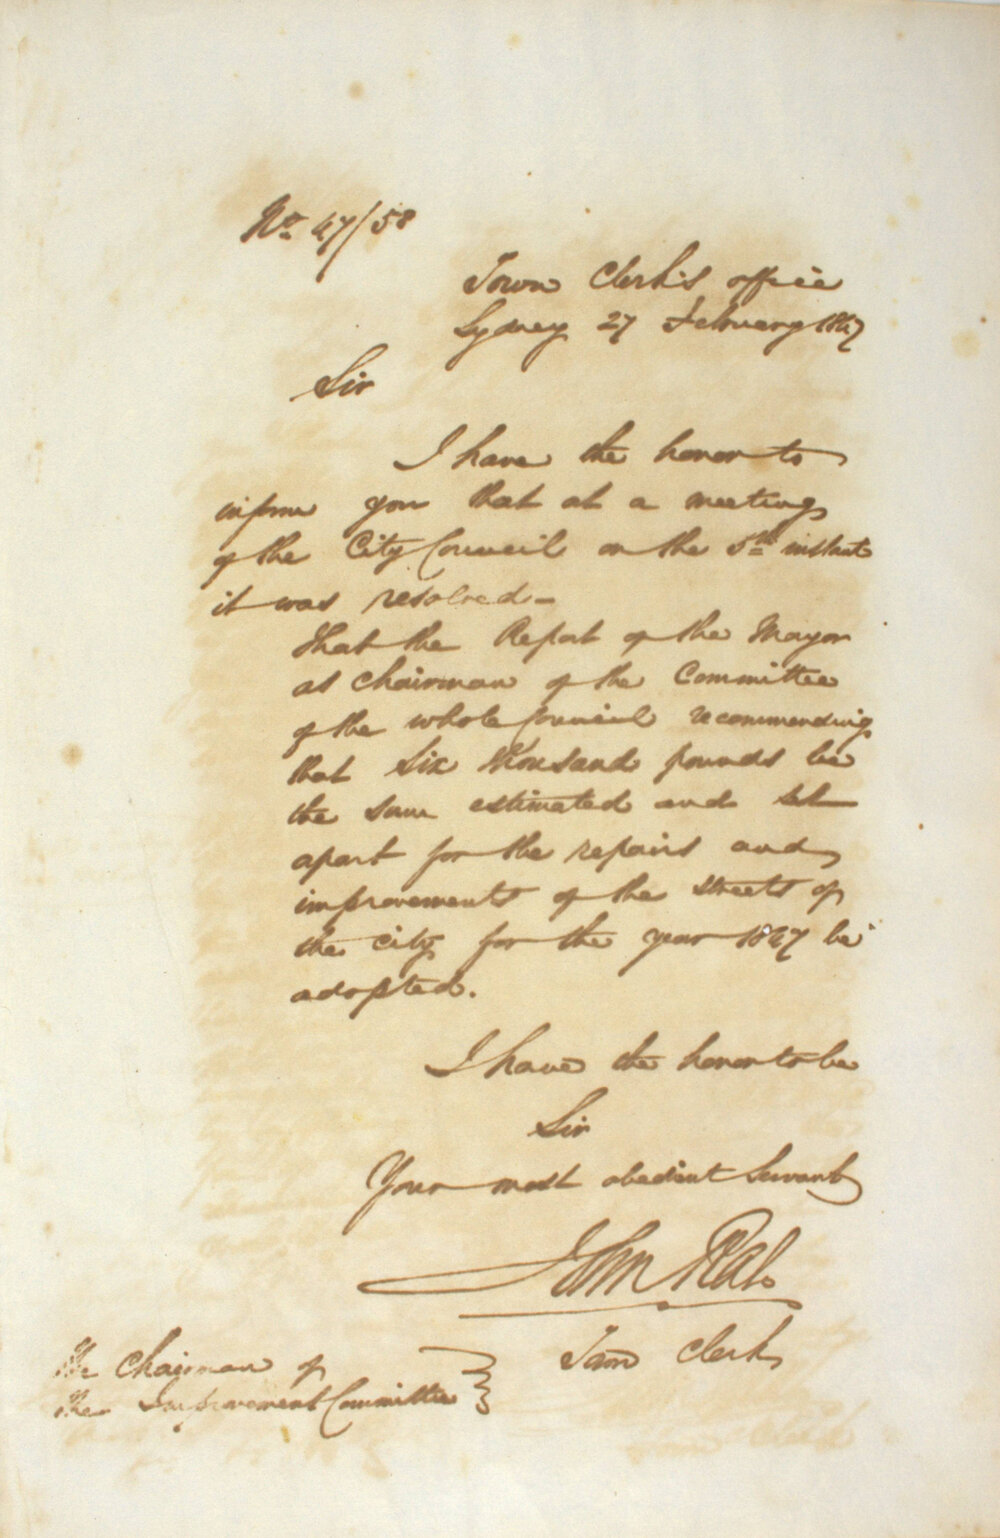 No. 47/58
Town Clerk's office
Sydney 27 February 1847
Sir
I have the honor to
inform you that at a meeting
of the City Council on the 5th instant
it was resolved -
that the Report of the Mayor
as Chairman of the Committee
of the whole Council recommending
that Six thousand pounds be
the sum estimated and set
apart for the repairs and
improvements of the streets of
the city for the year 1847 be
adopted.
I have the honor to be
Sir
Your most obedient Servant
John Rae
Town Clerk
The Chairman of
the Improvement Committee